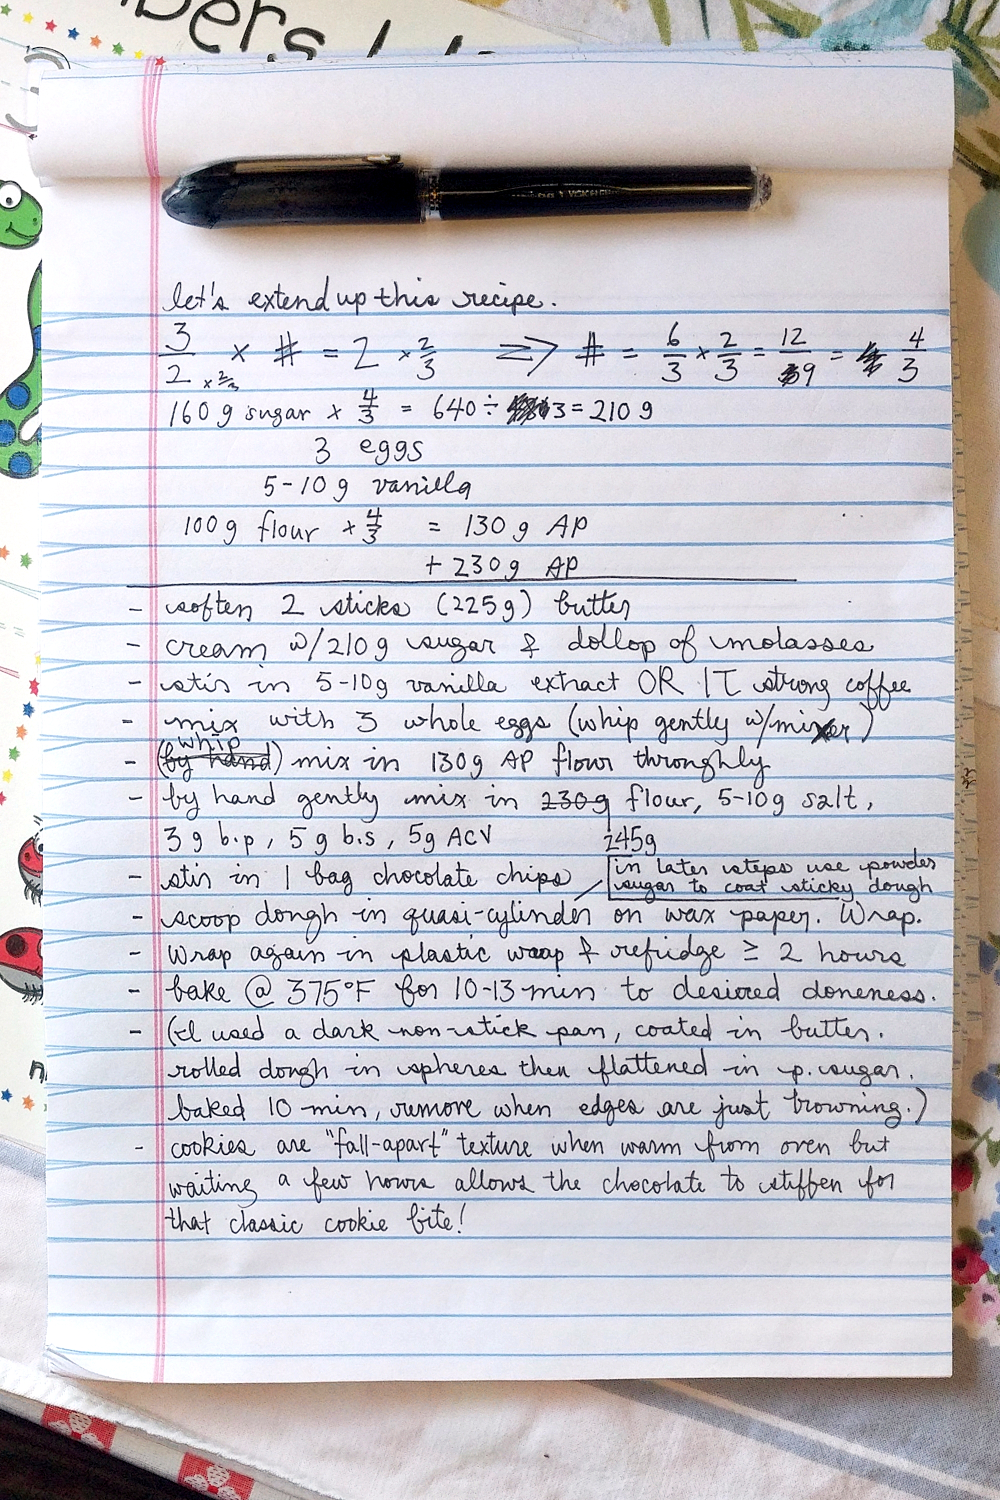 bers
let's extend up this recipe.
3/2 × # = 2 × 2/3 => # = 6/3 × 2/3 = 12/9 = 4/3
× 2/3
160 g sugar × 4/3 = 640 ÷ 3 = 210 g
3 eggs
5-10 g vanilla
100 g flour × 4/3 = 130 g AP
+ 230 g AP
- soften 2 sticks (225g) butter
- cream w/210g sugar & dollop of molasses
- stir in 5-10g vanilla extract OR 1T strong coffee
- mix with 3 whole eggs (whip gently w/mixer)
whip
- (by hand) mix in 130g AP flour throughly
- by hand gently mix in 230g flour, 5-10g salt,
245g
3 g b.p, 5 g b.s, 5g ACV
- stir in 1 bag chocolate chips
in later steps use powder
sugar to coat sticky dough
- scoop dough in quasi-cylinder on wax paper. Wrap.
- Wrap again in plastic wrap & refridge ≥ 2 hours
- bake @ 375°F for 10-13 min to desired doneness.
- (I used a dark non-stick pan, coated in butter.
rolled dough in spheres then flattened in p. sugar.
baked 10 min, remove when edges are just browning.)
- cookies are "fall-apart" texture when warm from oven but
waiting a few hours allows the chocolate to stiffen for
that classic cookie bite!